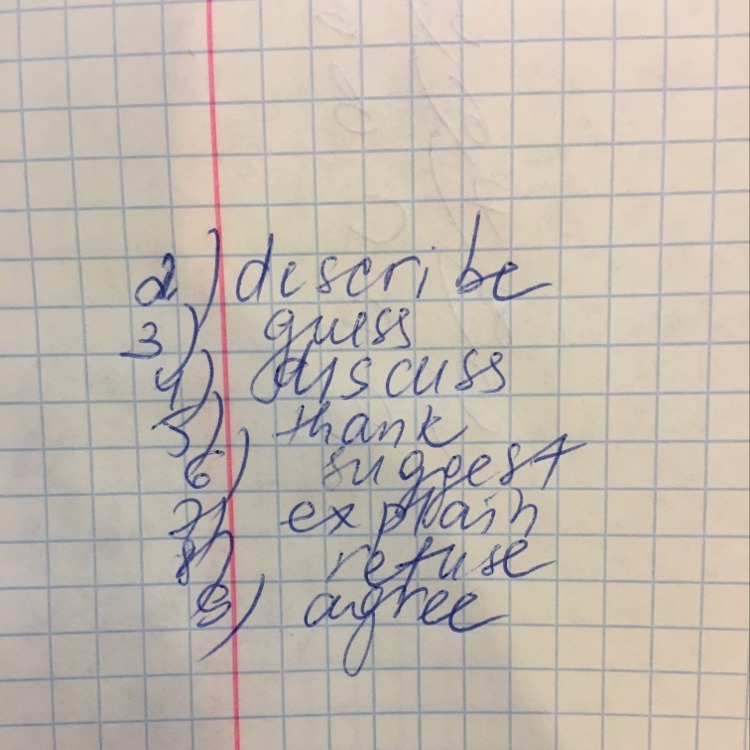 2) describe
3) guess
4) discuss
5) thank
6) suggest
7) explain
8) refuse
9) agree